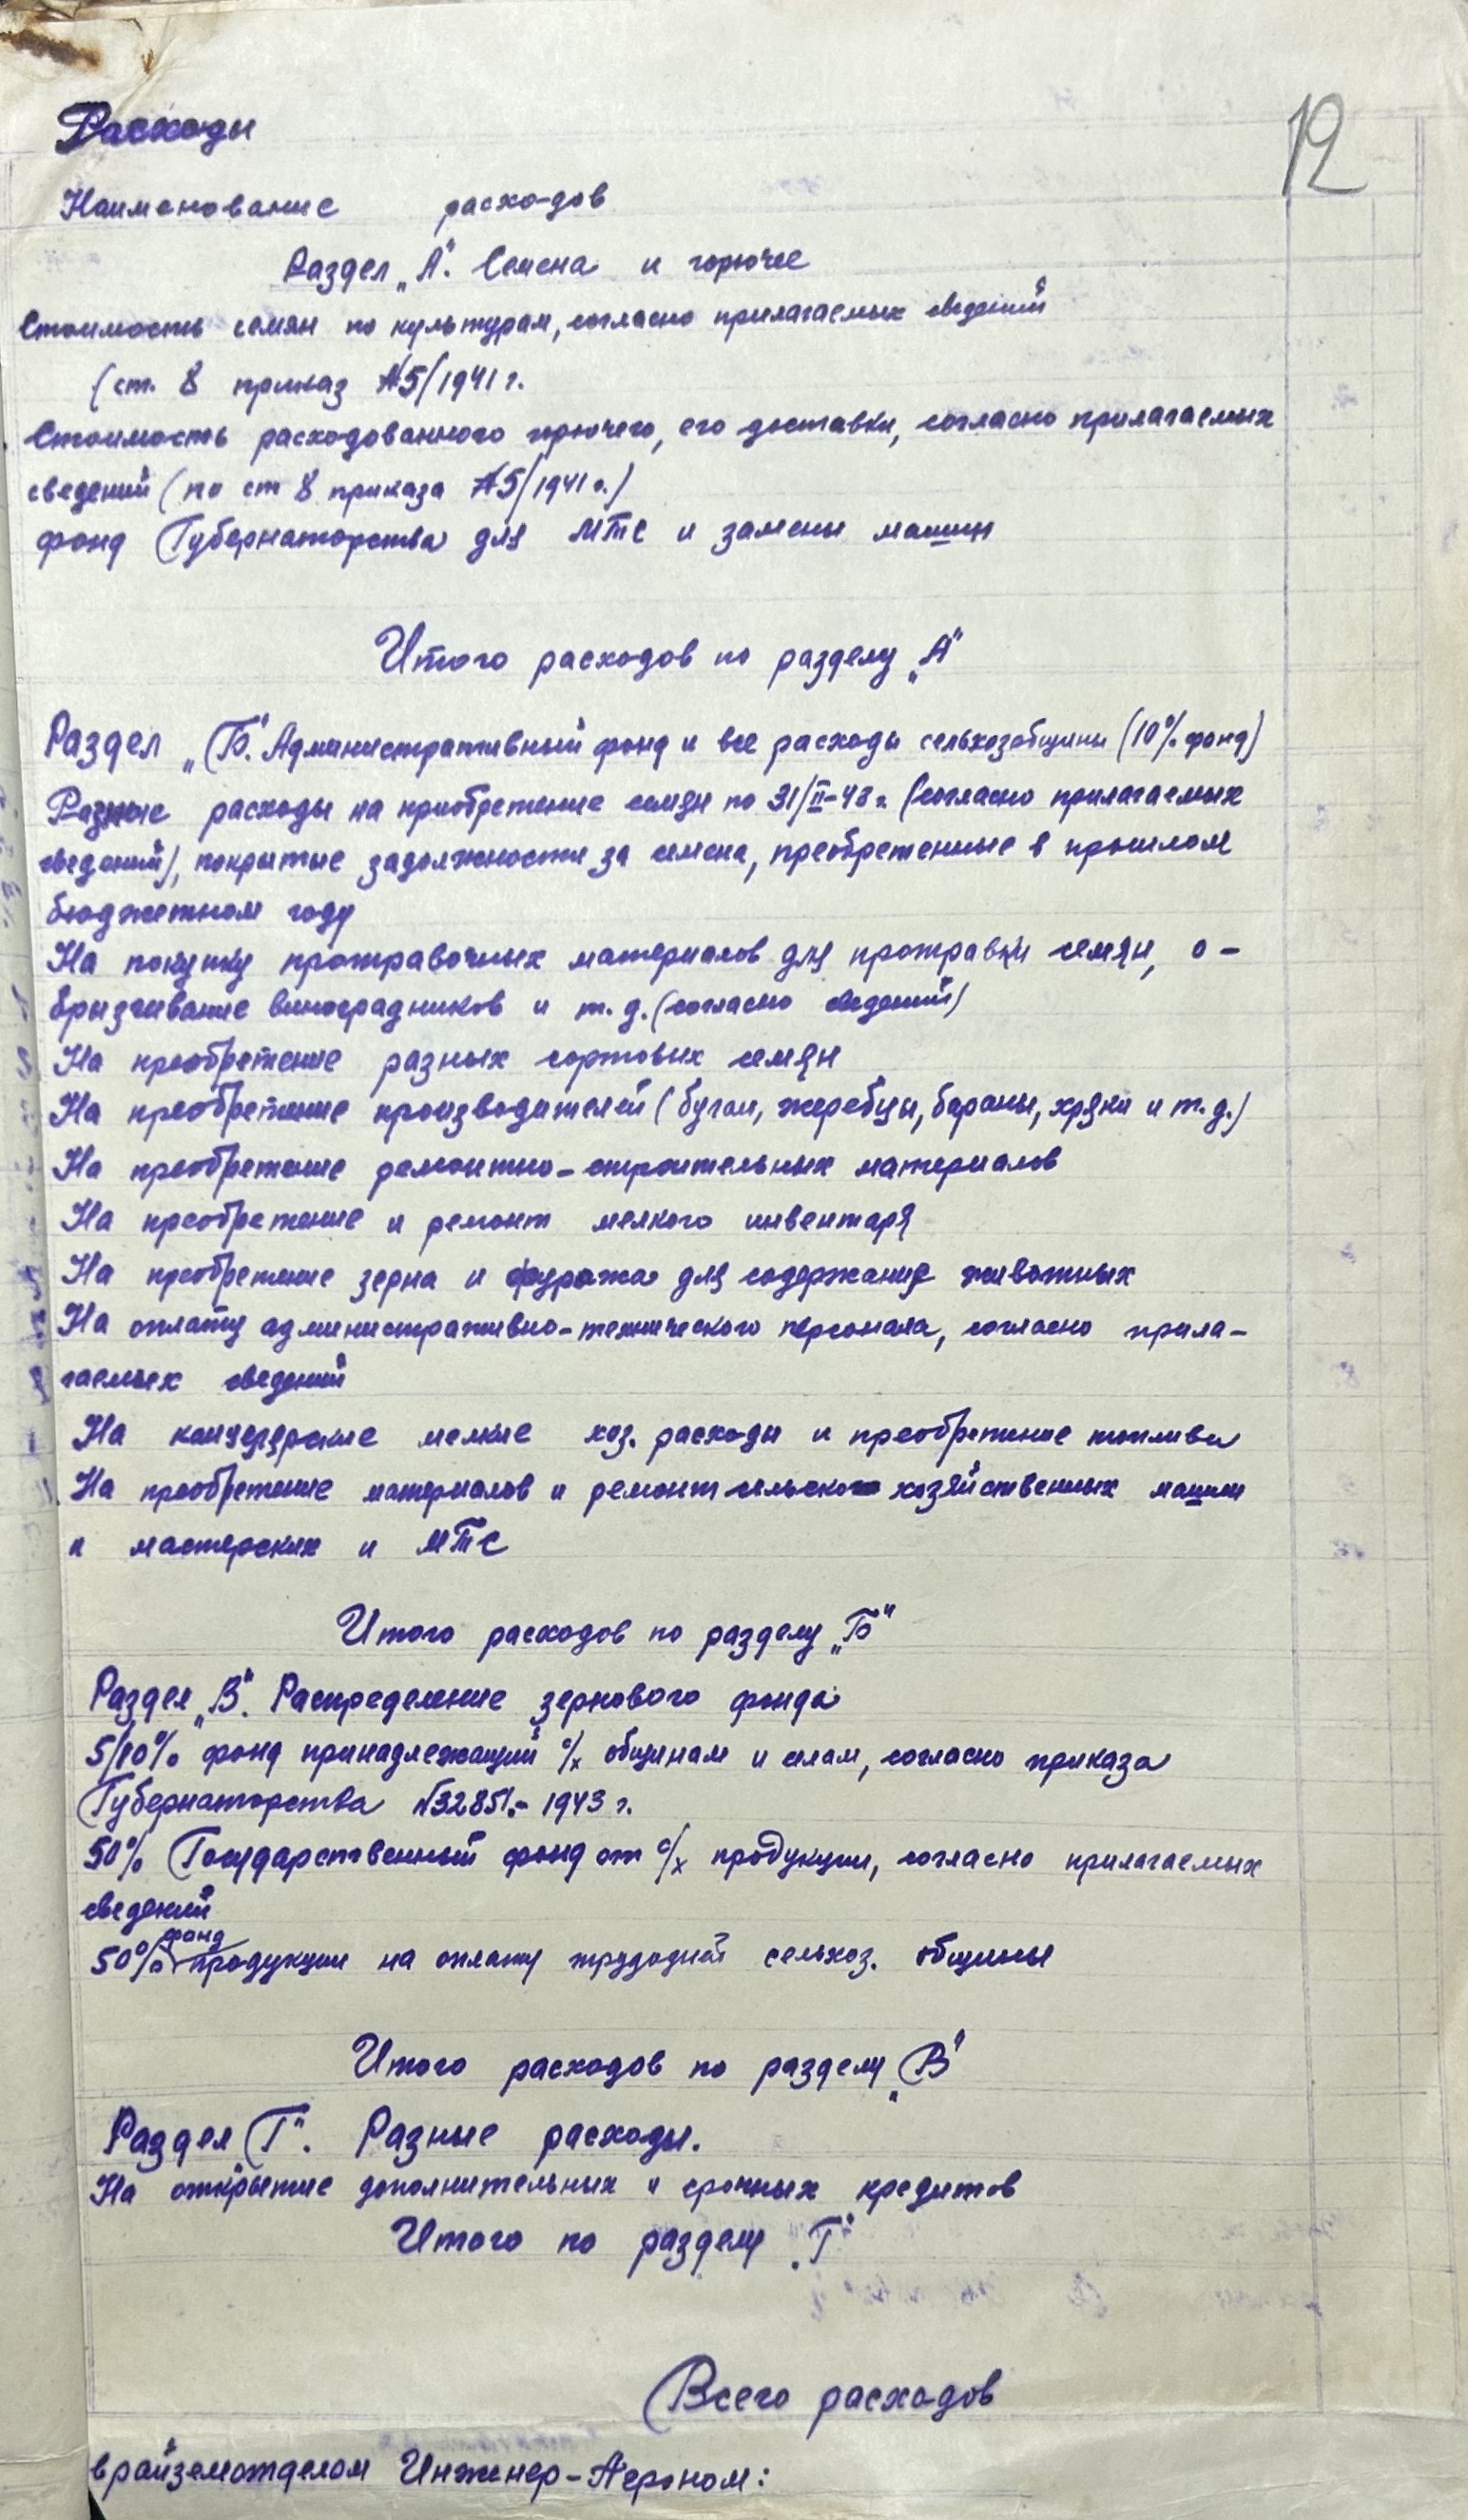 12
Расходы
Наименование расходов
Раздел „А". Семена и горючее
Стоимость семян по культурам, согласно прилагаемых сведений
(ст. 8 приказ №5/1941 г.
Стоимость расходованного горючего, его доставки, согласно прилагаемых
сведений (по ст 8 приказа №5/1941 г.)
фонд Губернаторства для МТС и замены машин
Итого расходов по разделу „А"
Раздел „Б". Административный фонд и все расходы сельхозобщины (10% фонд)
Разные расходы на приобретение семян по 31/II-43 г. (согласно прилагаемых
сведений), покрытие задолжности за семена, преобретенные в прошлом
бюджетном году
На покупку протравочных материалов для протравки семян, о-
брызгивание виноградников и т.д. (согласно сведений)
На преобретение разных сортовых семян
На преобретение производителей (бугаи, жеребцы, бараны, хряки и т.д.)
На преобретение ремонтно-строительных материалов
На преобретение и ремонт мелкого инвентаря
На преобретение зерна и фуража для содержание животных
На оплату административно-технического персонала, согласно прила-
гаемых сведений
На канцелярские мелкие хоз. расходы и преобретение топлива
На преобретение материалов и ремонт сельско хозяйственных машин
и мастерских и МТС
Итого расходов по разделу „Б"
Раздел „В". Распределение зернового фонда
5/10% фонд принадлежащий с/х общинам и селам, согласно приказа
Губернаторства №3285/.- 1943 г.
50% Государственный фонд от с/х продукции, согласно прилагаемых
сведений
50% фонд продукции на оплату трудодней сельхоз. общины
Итого расходов по разделу „В"
Раздел „Г". Разные расходы.
На открытие дополнительных и срочных кредитов
Итого по разделу „Г"
Всего расходов
в райземотделом Инженер-Агроном: